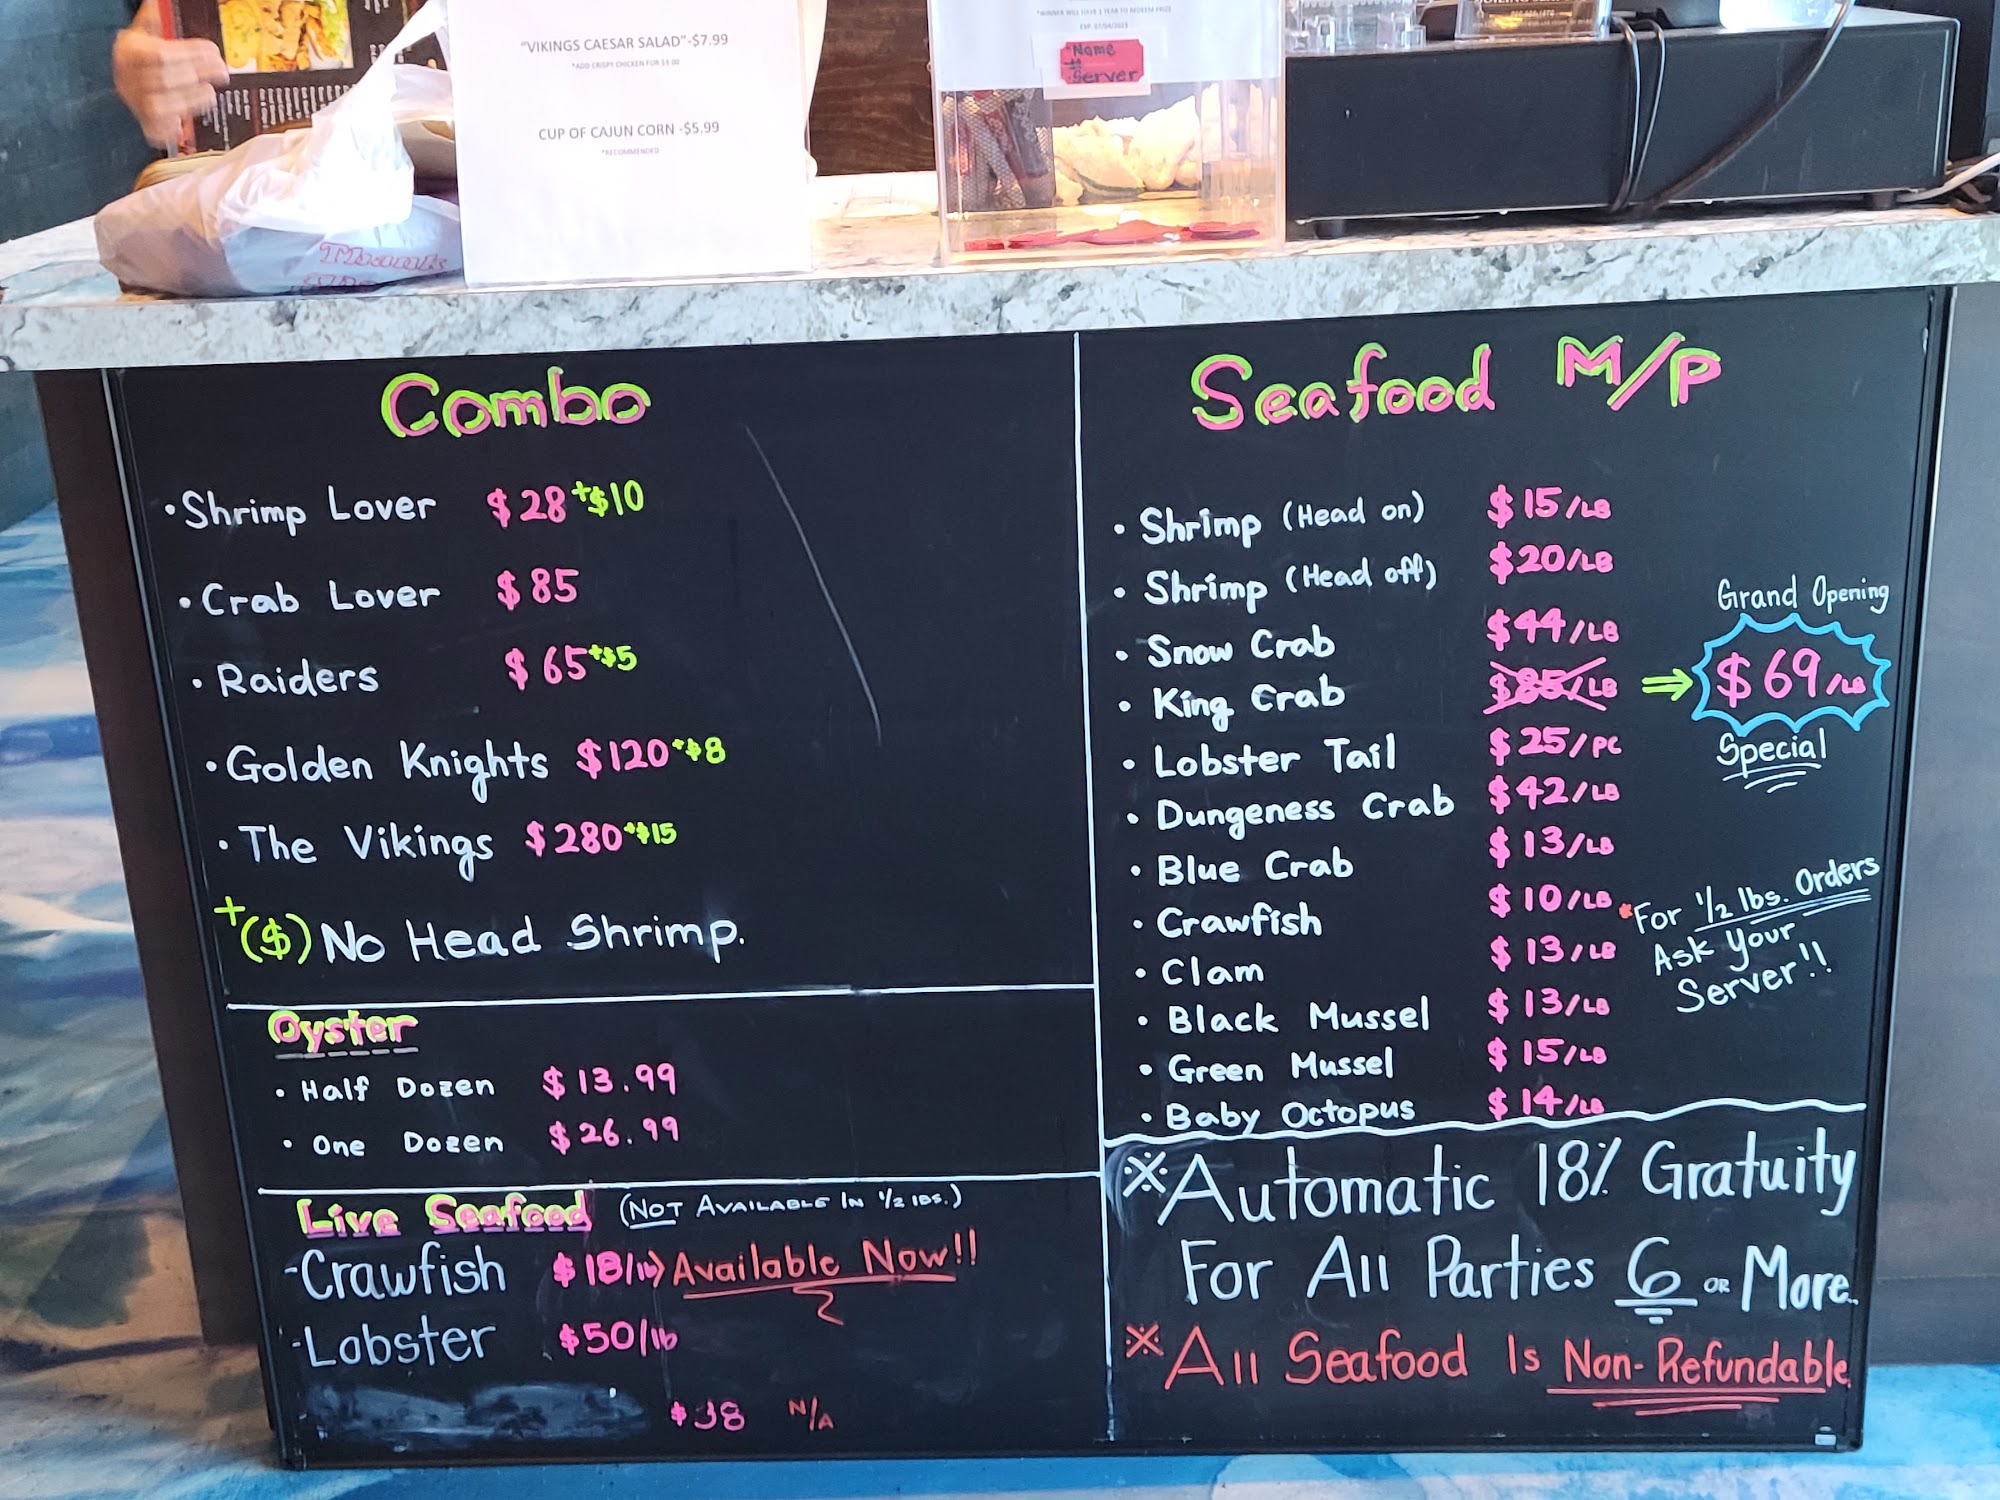 "VIKINGS CAESAR SALAD"-$7.99
*ADD CRISPY CHICKEN FOR $3.00
CUP OF CAJUN CORN -$5.99
*RECOMMENDED
*WINNER WILL HAVE 1 YEAR TO REDEEM PRIZE
EXP. 07/04/2023
Name
#
Server
Thank
Combo
• Shrimp Lover $28 +$10
• Crab Lover $85
• Raiders $65 +$5
• Golden Knights $120 +$8
• The Vikings $280 +$15
+($) No Head Shrimp.
Oyster
• Half Dozen $13.99
• One Dozen $26.99
Live Seafood (NOT AVAILABLE IN 1/2 lbs.)
-Crawfish $18/lb > Available Now!!
-Lobster $50/lb
$38 N/A
Seafood M/P
• Shrimp (Head on) $15/LB
• Shrimp (Head off) $20/LB
• Snow Crab $44/LB
• King Crab $85/LB ⇒ $69/LB
Grand Opening
Special
• Lobster Tail $25/PC
• Dungeness Crab $42/LB
• Blue Crab $13/LB
• Crawfish $10/LB
• Clam $13/LB
• Black Mussel $13/LB
• Green Mussel $15/LB
• Baby Octopus $14/LB
*For 1/2 lbs. Orders
Ask Your
Server!!
※Automatic 18% Gratuity
For All Parties 6 OR More.
※All Seafood Is Non-Refundable